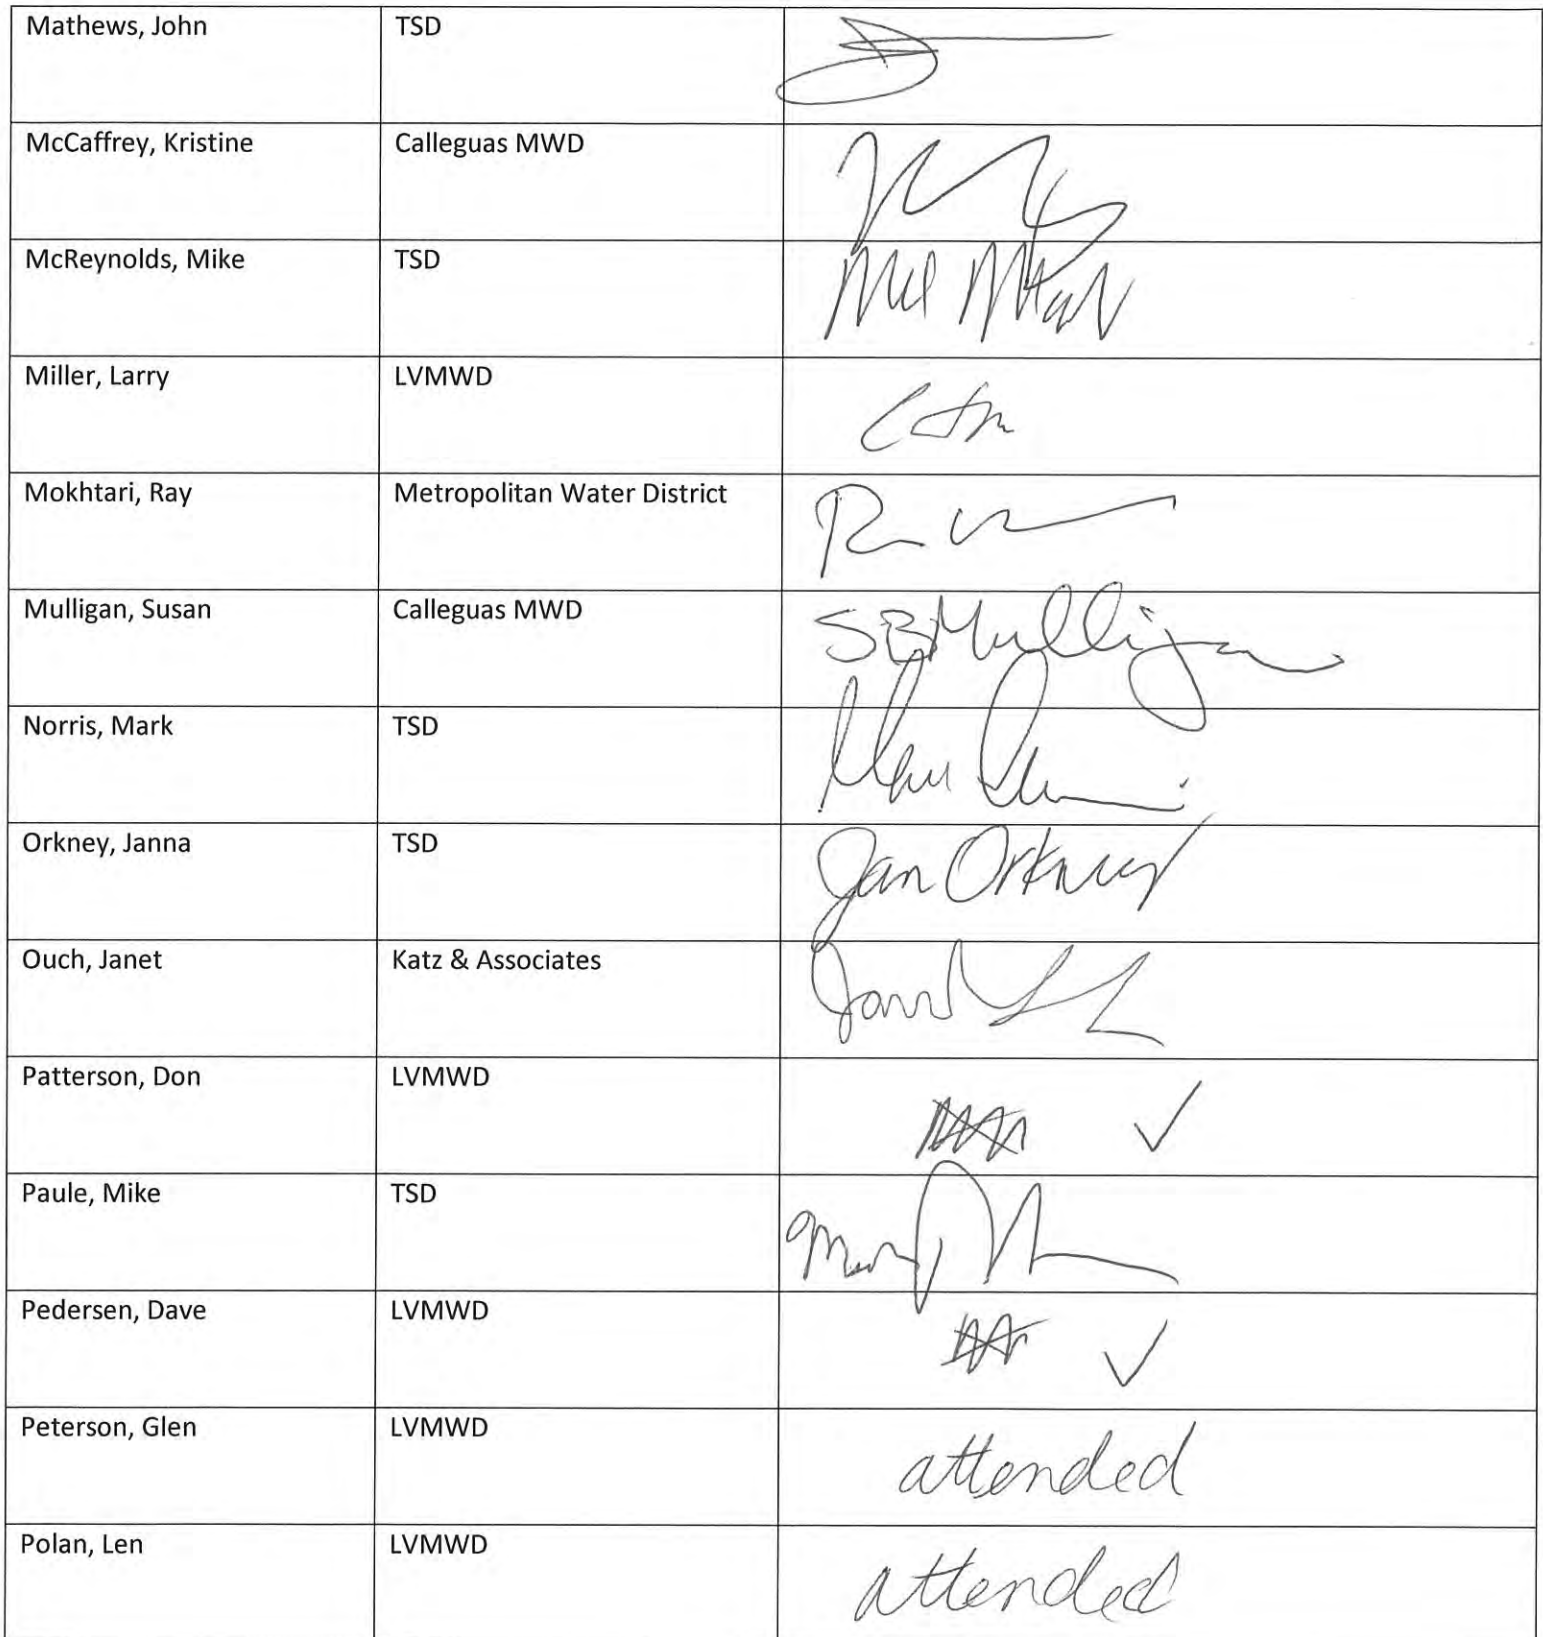 Mathews, John TSD
McCaffrey, Kristine Calleguas MWD
McReynolds, Mike TSD
Miller, Larry LVMWD
Mokhtari, Ray Metropolitan Water District
Mulligan, Susan Calleguas MWD SBMulligan
Norris, Mark TSD
Orkney, Janna TSD Jan Orkney
Ouch, Janet Katz & Associates
Patterson, Don LVMWD ✓
Paule, Mike TSD
Pedersen, Dave LVMWD ✓
Peterson, Glen LVMWD attended
Polan, Len LVMWD attended